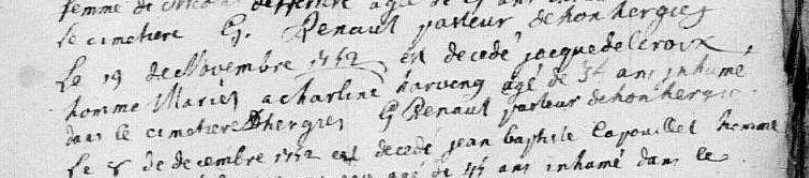 femme de agé de ans
le cimetiere G. Renaut pasteur dehonhergies
Le 19 de Novembre 1752 est decedé jacque delcroix
homme Mariéz a charline harveng agé de 54 ans inhumé
dans le cimetiere Dhergies G Renaut pasteur dehonhergies
Le 8 de decembre 1752 est decedé jean baptiste Capouillet homme
agé de ans inhumé dans le